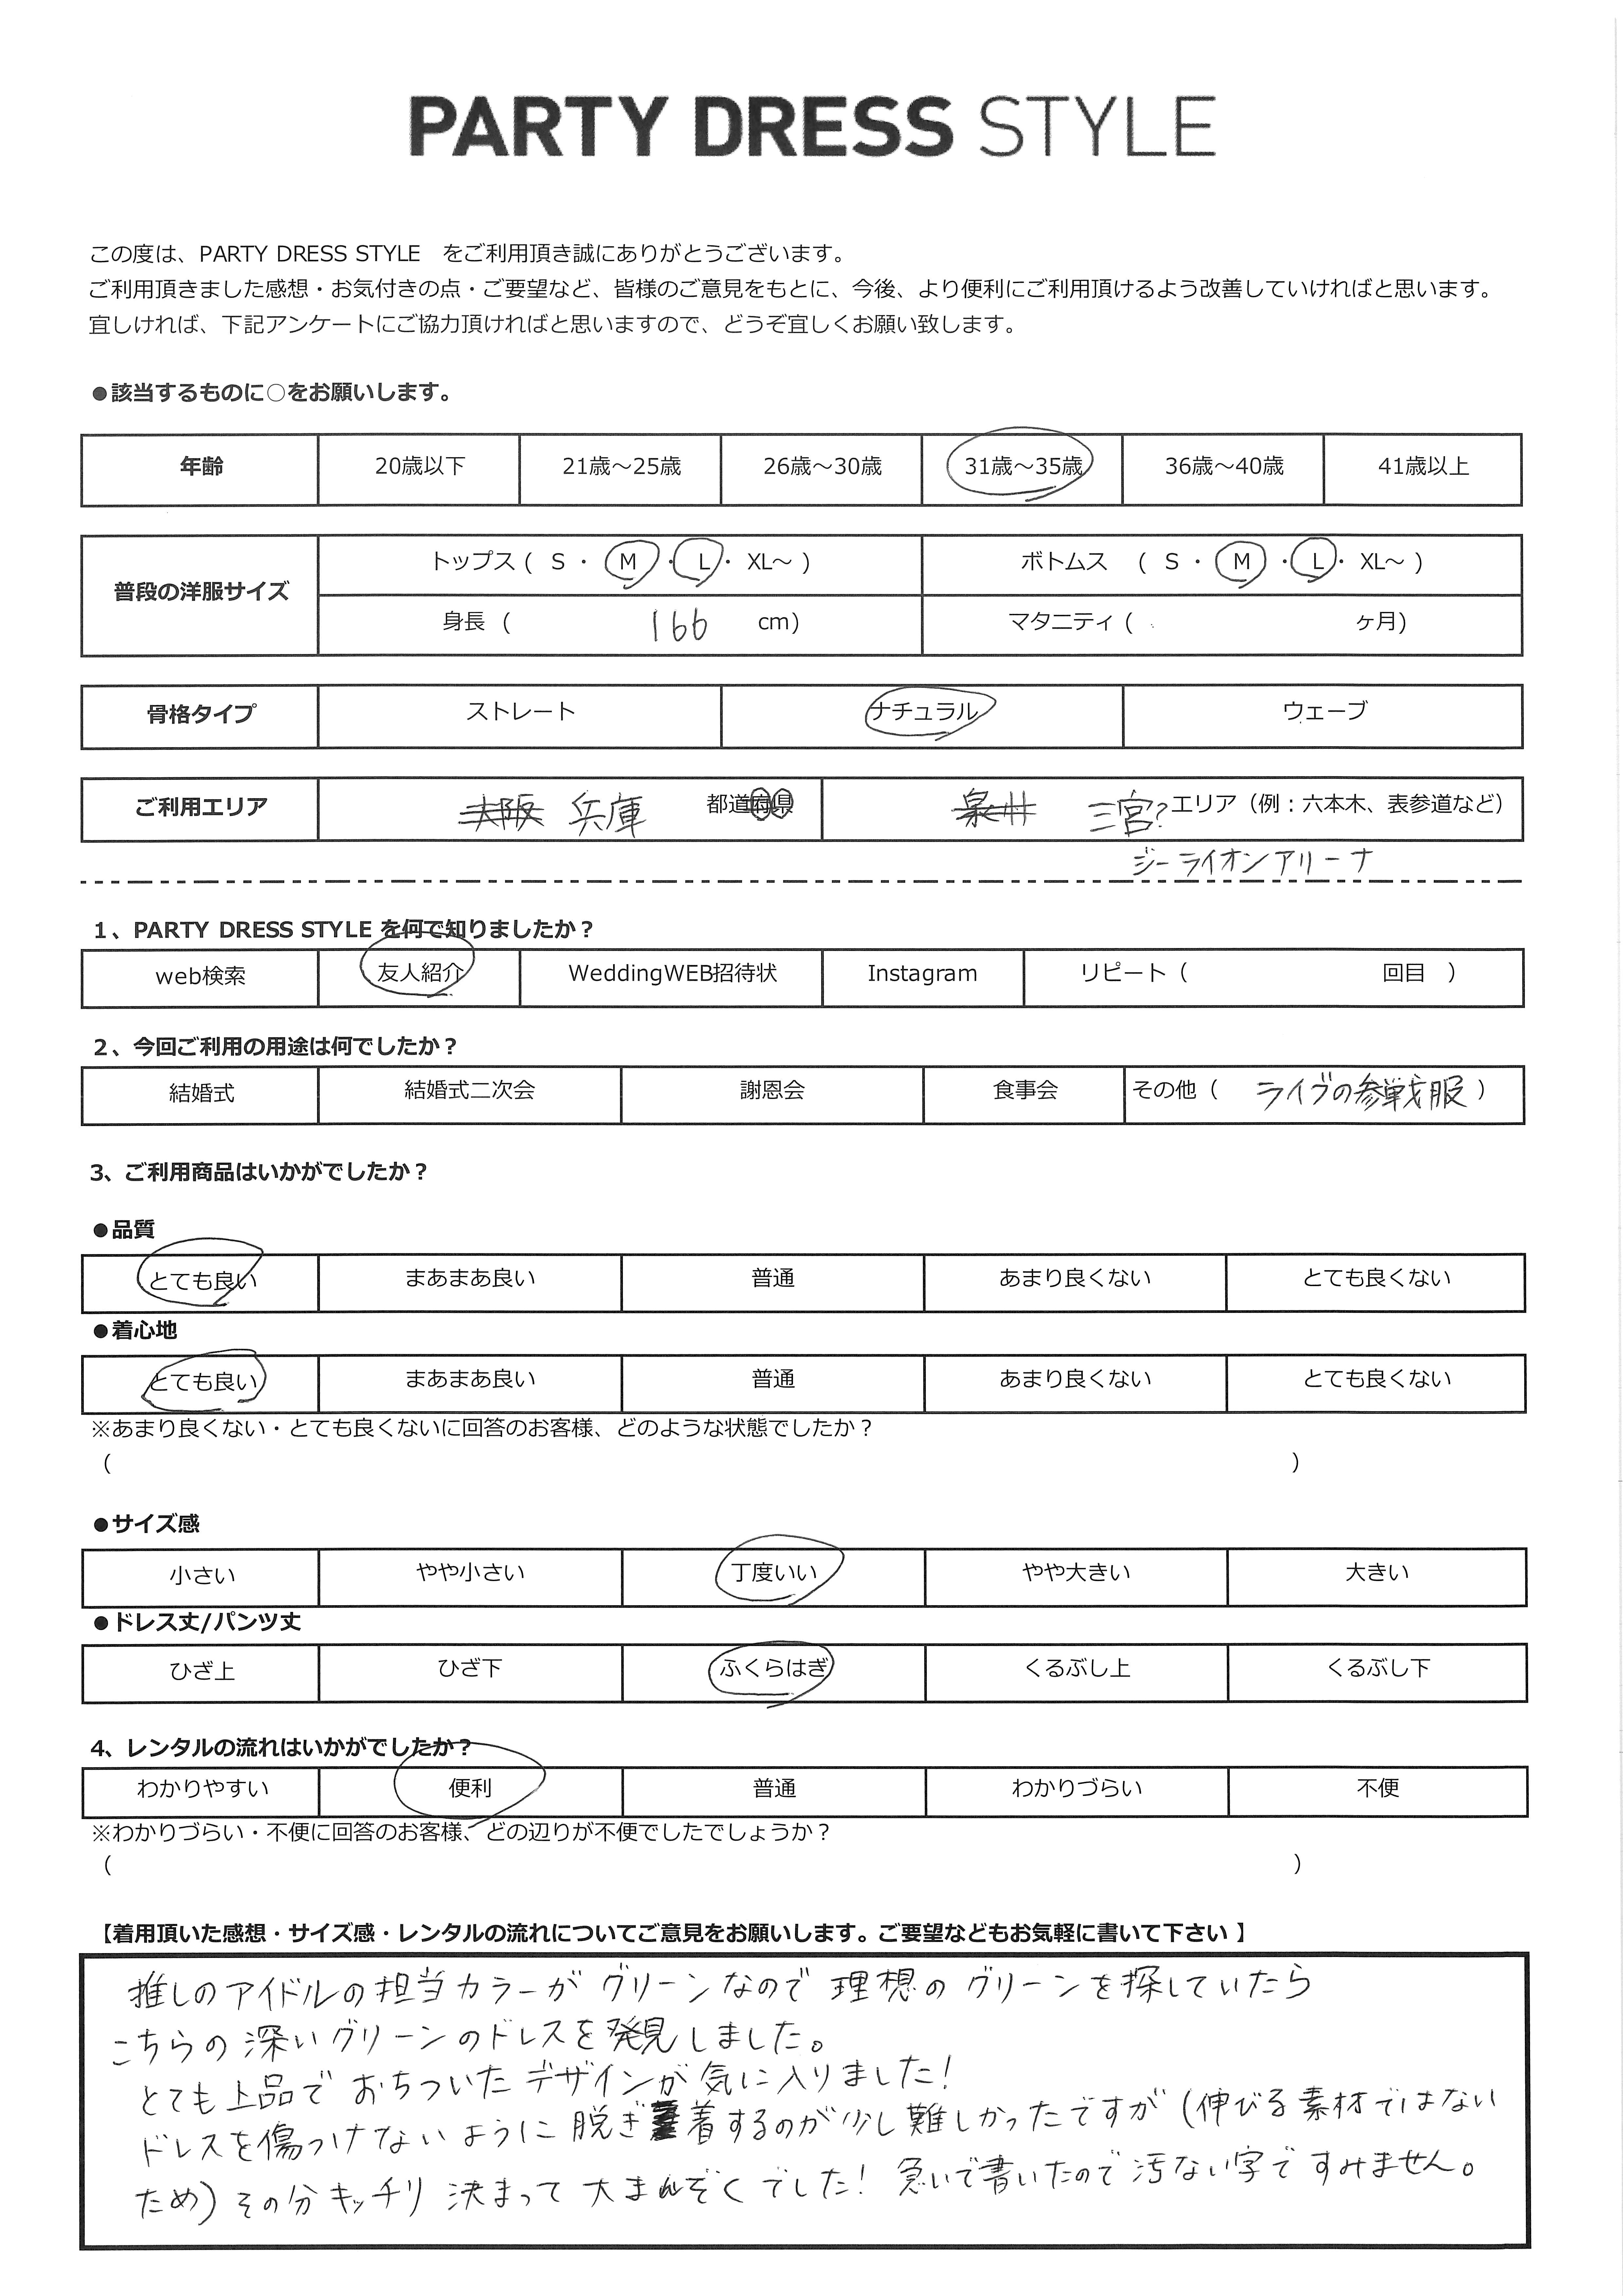 PARTY DRESS STYLE
この度は、PARTY DRESS STYLE　をご利用頂き誠にありがとうございます。
ご利用頂きました感想・お気付きの点・ご要望など、皆様のご意見をもとに、今後、より便利にご利用頂けるよう改善していければと思います。
宜しければ、下記アンケートにご協力頂ければと思いますので、どうぞ宜しくお願い致します。
●該当するものに○をお願いします。
年齢 20歳以下 21歳～25歳 26歳～30歳 31歳～35歳 36歳～40歳 41歳以上
普段の洋服サイズ トップス ( S ・ M ・ L ・ XL～ ) ボトムス ( S ・ M ・ L ・ XL～ )
身長 ( 166 cm) マタニティ ( ヶ月)
骨格タイプ ストレート ナチュラル ウェーブ
ご利用エリア 大阪 兵庫 都道府県 三宮? エリア（例：六本木、表参道など）
ジーライオンアリーナ
1、PARTY DRESS STYLE を何で知りましたか？
web検索 友人紹介 WeddingWEB招待状 Instagram リピート（ 回目 ）
2、今回ご利用の用途は何でしたか？
結婚式 結婚式二次会 謝恩会 食事会 その他（ ライブの参戦服 ）
3、ご利用商品はいかがでしたか？
●品質
とても良い まあまあ良い 普通 あまり良くない とても良くない
●着心地
とても良い まあまあ良い 普通 あまり良くない とても良くない
※あまり良くない・とても良くないに回答のお客様、どのような状態でしたか？
( )
●サイズ感
小さい やや小さい 丁度いい やや大きい 大きい
●ドレス丈/パンツ丈
ひざ上 ひざ下 ふくらはぎ くるぶし上 くるぶし下
4、レンタルの流れはいかがでしたか？
わかりやすい 便利 普通 わかりづらい 不便
※わかりづらい・不便に回答のお客様、どの辺りが不便でしたでしょうか？
( )
【着用頂いた感想・サイズ感・レンタルの流れについてご意見をお願いします。ご要望などもお気軽に書いて下さい 】
推しのアイドルの担当カラーが グリーンなので 理想の グリーンを探していたら
こちらの 深いグリーンのドレスを発見しました。
とても上品で おちついた デザインが気に入りました!
ドレスを傷つけないように 脱ぎ着するのが少し難しかったですが (伸びる素材ではない
ため) その分キッチリ 決まって 大まんぞくでした! 急いで書いたので汚ない字ですみません。